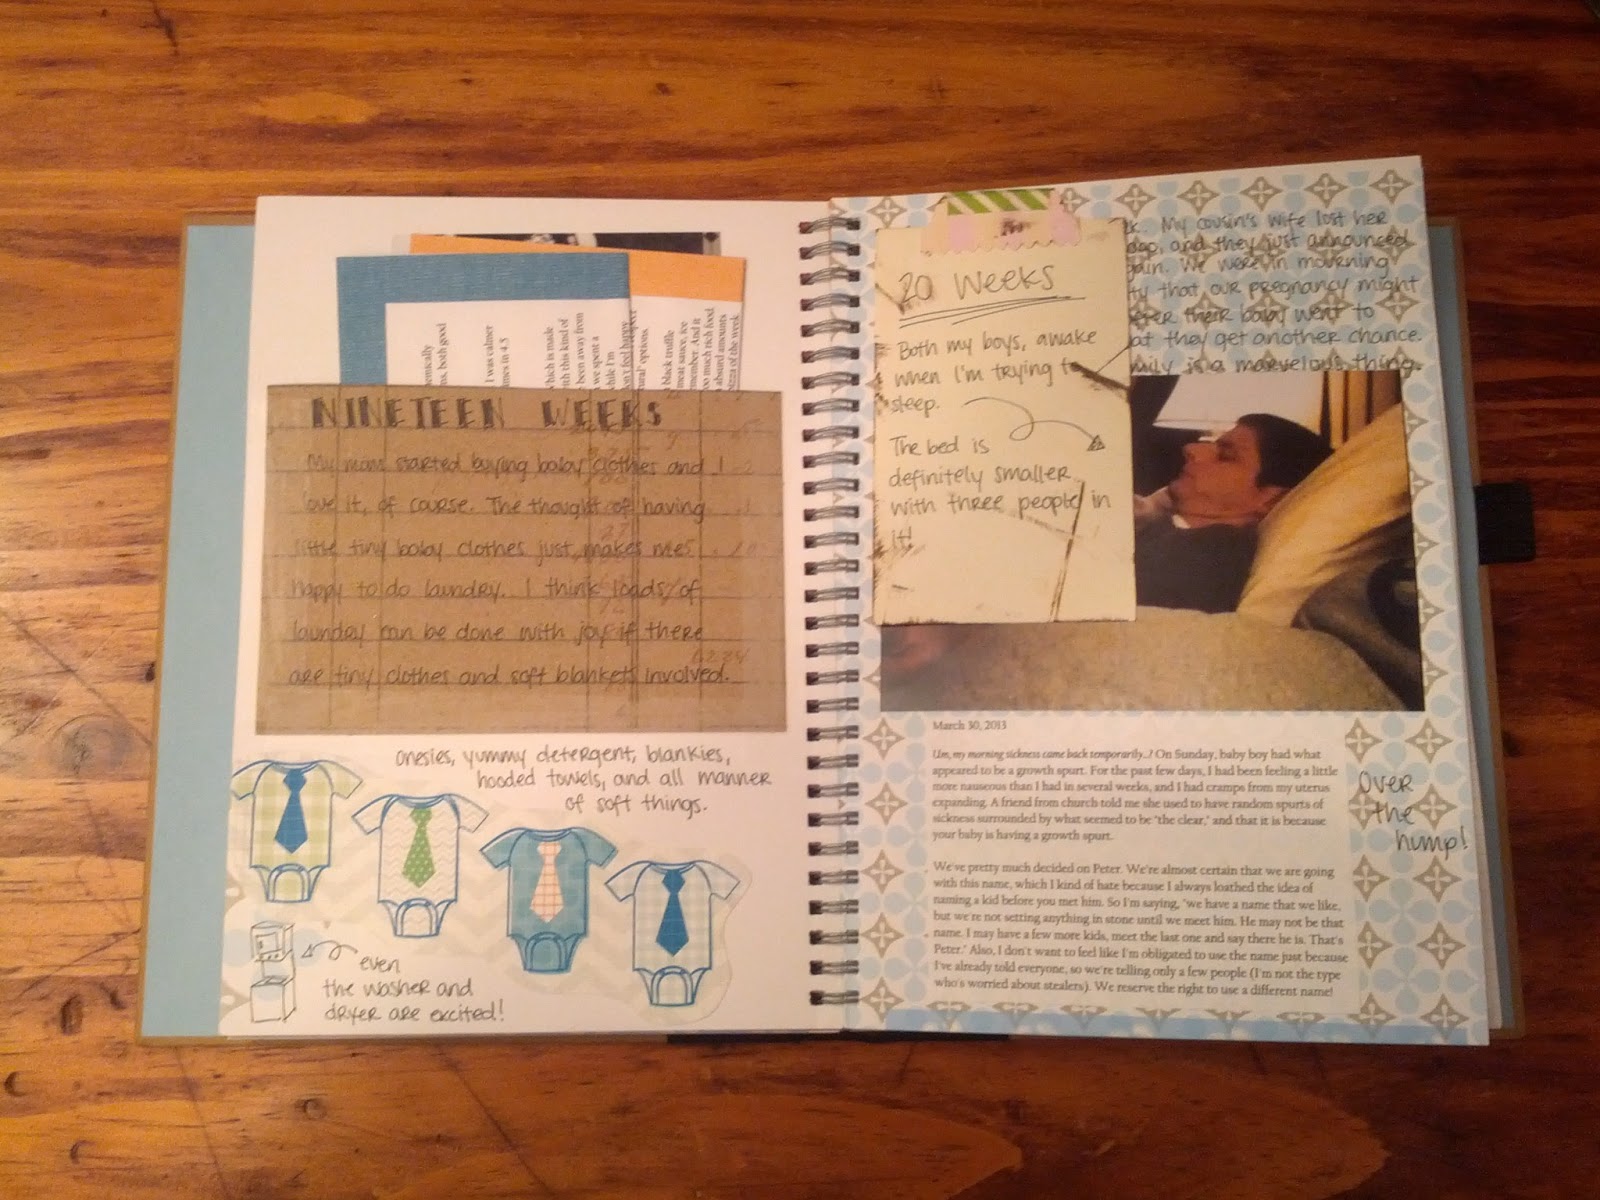 hemically
ns, both good
I was calmer
mes in 4.5
which is made
ith this kind of
been away from
we spent a
while I'm
on't feel happy
tural" options
black truffle
meat sauce, ice
member. And it
oo much rich food.
absurd amounts
pizza of the week
NINETEEN WEEKS
My mom started buying baby clothes and I
love it, of course. The thought of having
little tiny baby clothes just makes me
happy to do laundry. I think loads of
laundry can be done with joy if there
are tiny clothes and soft blankets involved.
onesies, yummy detergent, blankies,
hooded towels, and all manner
of soft things.
even
the washer and
dryer are excited!
k. My cousin's wife lost her
ago, and they just announced
gain. We were in mourning
ty that our pregnancy might
after their baby went to
at they get another chance.
mily is a marvelous thing.
20 Weeks
Both my boys, awake
when I'm trying to
sleep.
The bed is
definitely smaller
with three people in
it!
March 30, 2013
Um, my morning sickness came back temporarily..? On Sunday, baby boy had what
appeared to be a growth spurt. For the past few days, I had been feeling a little
more nauseous than I had in several weeks, and I had cramps from my uterus
expanding. A friend from church told me she used to have random spurts of
sickness surrounded by what seemed to be "the clear," and that it is because
your baby is having a growth spurt.
We've pretty much decided on Peter. We're almost certain that we are going
with this name, which I kind of hate because I always loathed the idea of
naming a kid before you met him. So I'm saying, "we have a name that we like,
but we're not setting anything in stone until we meet him. He may not be that
name. I may have a few more kids, meet the last one and say there he is. That's
Peter." Also, I don't want to feel like I'm obligated to use the name just because
I've already told everyone, so we're telling only a few people (I'm not the type
who's worried about stealers). We reserve the right to use a different name!
Over
the
hump!